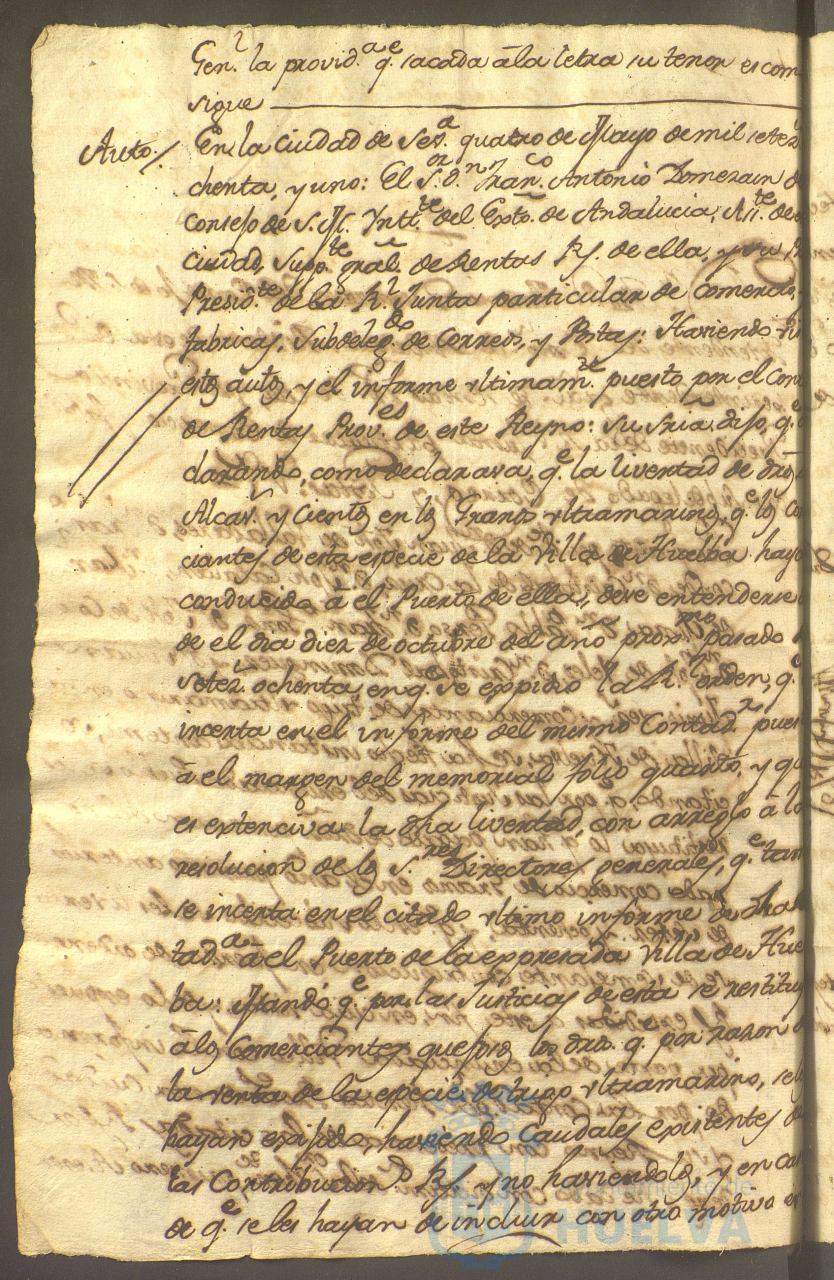 Gen.l la provid.a q.e sacada â la letra su tenor es com
sigue
Auto./ En la ciudad de Sev.a quatro de Mayo de mil setez.
chenta, y uno: El S.or d.n Fran.co Antonio Domezain d
consejo de S. M. Yntt.te del Exto. de Andalucia, As.te de e
ciudad, Supp.te gral. de Rentas R.s de ella, y su
Presid.te de la R.l Junta particular de comercio,
fabricas, Subdeleg.do de Correos, y Postas: Haviendo vis
estos autos, y el informe ultimam.te puesto por el Con
de Rentas Prov.es de este Reyno: Su Sria. dijo, q.e
clarando, como declarava, q.e la livertad de dros
Alcav.s y Cientos en los Granos ultramarinos, q.e los co
ciantes de esta especie de la Villa de Huelba hayan
conducido â el Puerto de ella, deve entenderse
de el dia diez de octubre del año prox.mo pasado
setez.s ochenta, en q.e se expidio la R.l orden, q.e
incerta en el informe del mismo Contad.r pues
â el margen del memorial folio quarto, y qu
es extenciva la dha livertad, con arreglo â la
resolucion de los S.res Directores generales, q.e tam
se incerta en el citado ultimo informe de
tad.a â el Puerto de la expresada Villa de Hue
ba: Mandó q.e por las Justicias de esta se restituy
â los Comerciantes quejosos los dros. q.e por razon d
la venta de la especie de trigo ultramarino, se les
hayan exijido, haviendo Caudales existentes de
tas Contribucion.s R.s y no haviendolos, y en cas
de q.e se les hayan de incluir con otro motivo en
HUELVA